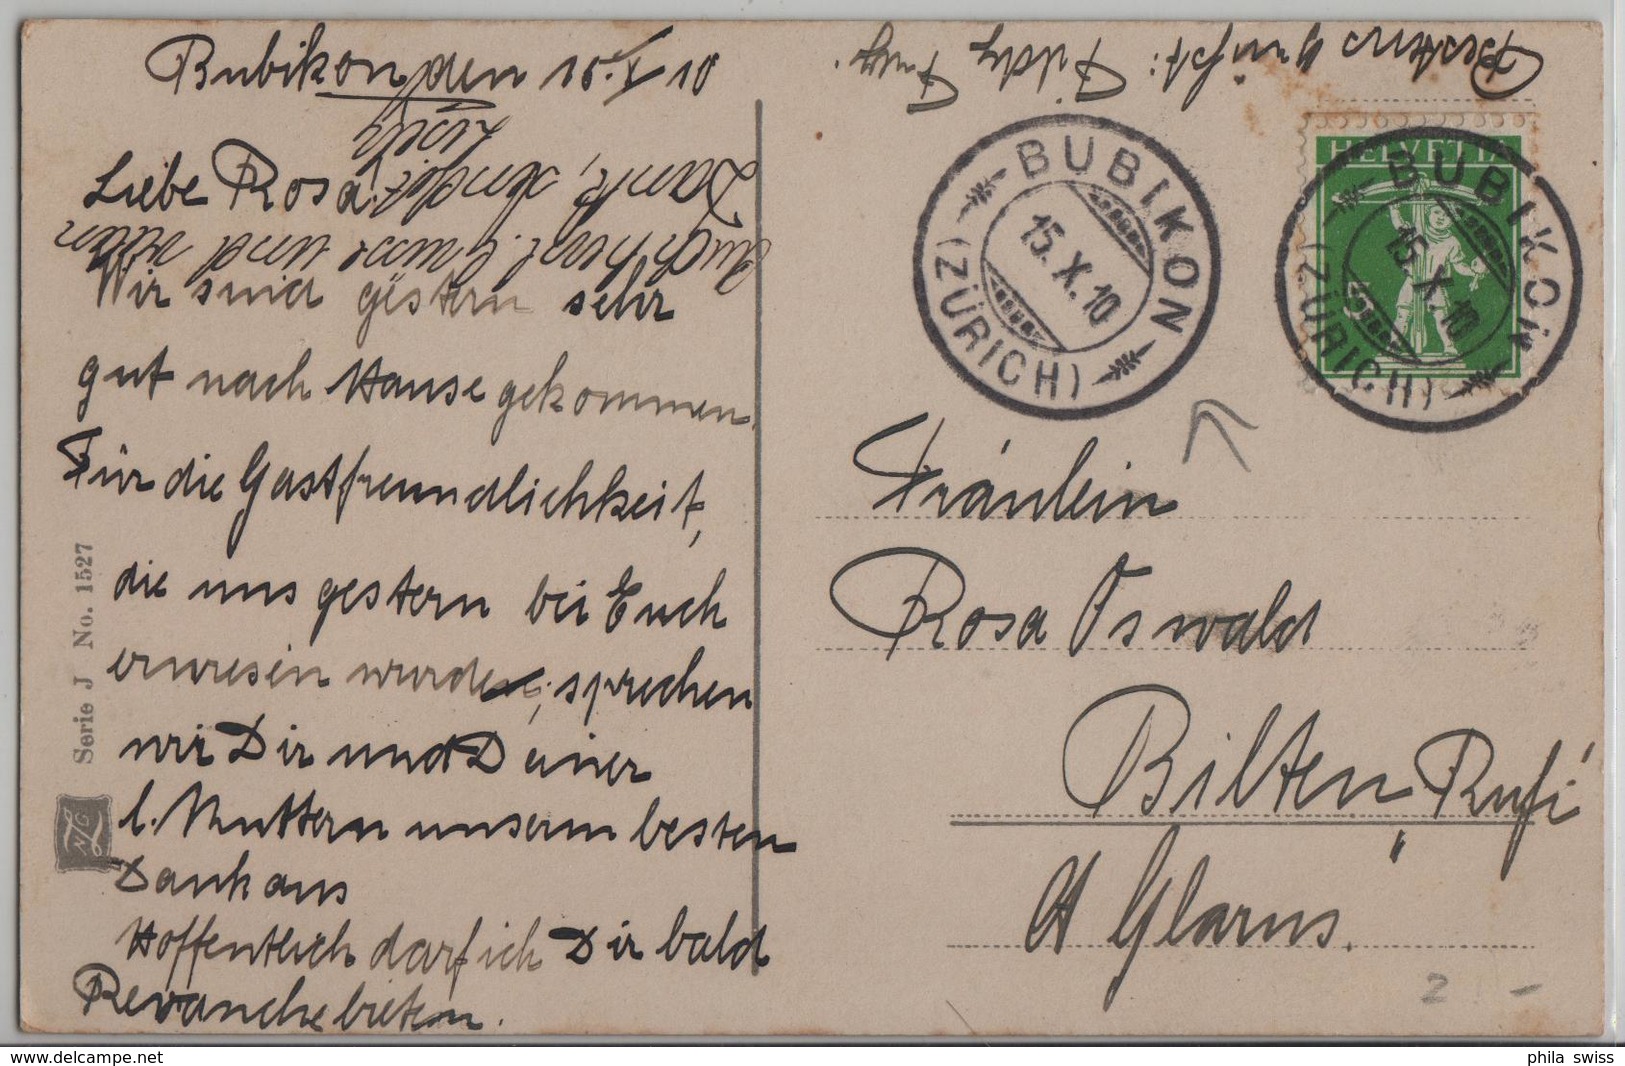 Bubikon den 15. X 10
Liebe Rosa!
Wir sind gestern sehr
gut nach Hause gekommen.
Für die Gastfreundlichkeit,
die uns gestern bei Euch
erwiesen wurde, sprechen
wir Dir und Deiner
l. Muttern unsern besten
Dank aus
Hoffentlich darf ich Dir bald
Revanche bieten.
Auch herzl. Gruss und vielen
Dank, sendet
Serie J No. 1527
NGZ
Bestens grüsst:
HELVETIA
BUBIKON
15.X.10
(ZÜRICH)
BUBIKON
15.X.10
(ZÜRICH)
Fräulein
Rosa Oswald
Bilten, Rufi
Kt Glarus.
2 -
phila swiss